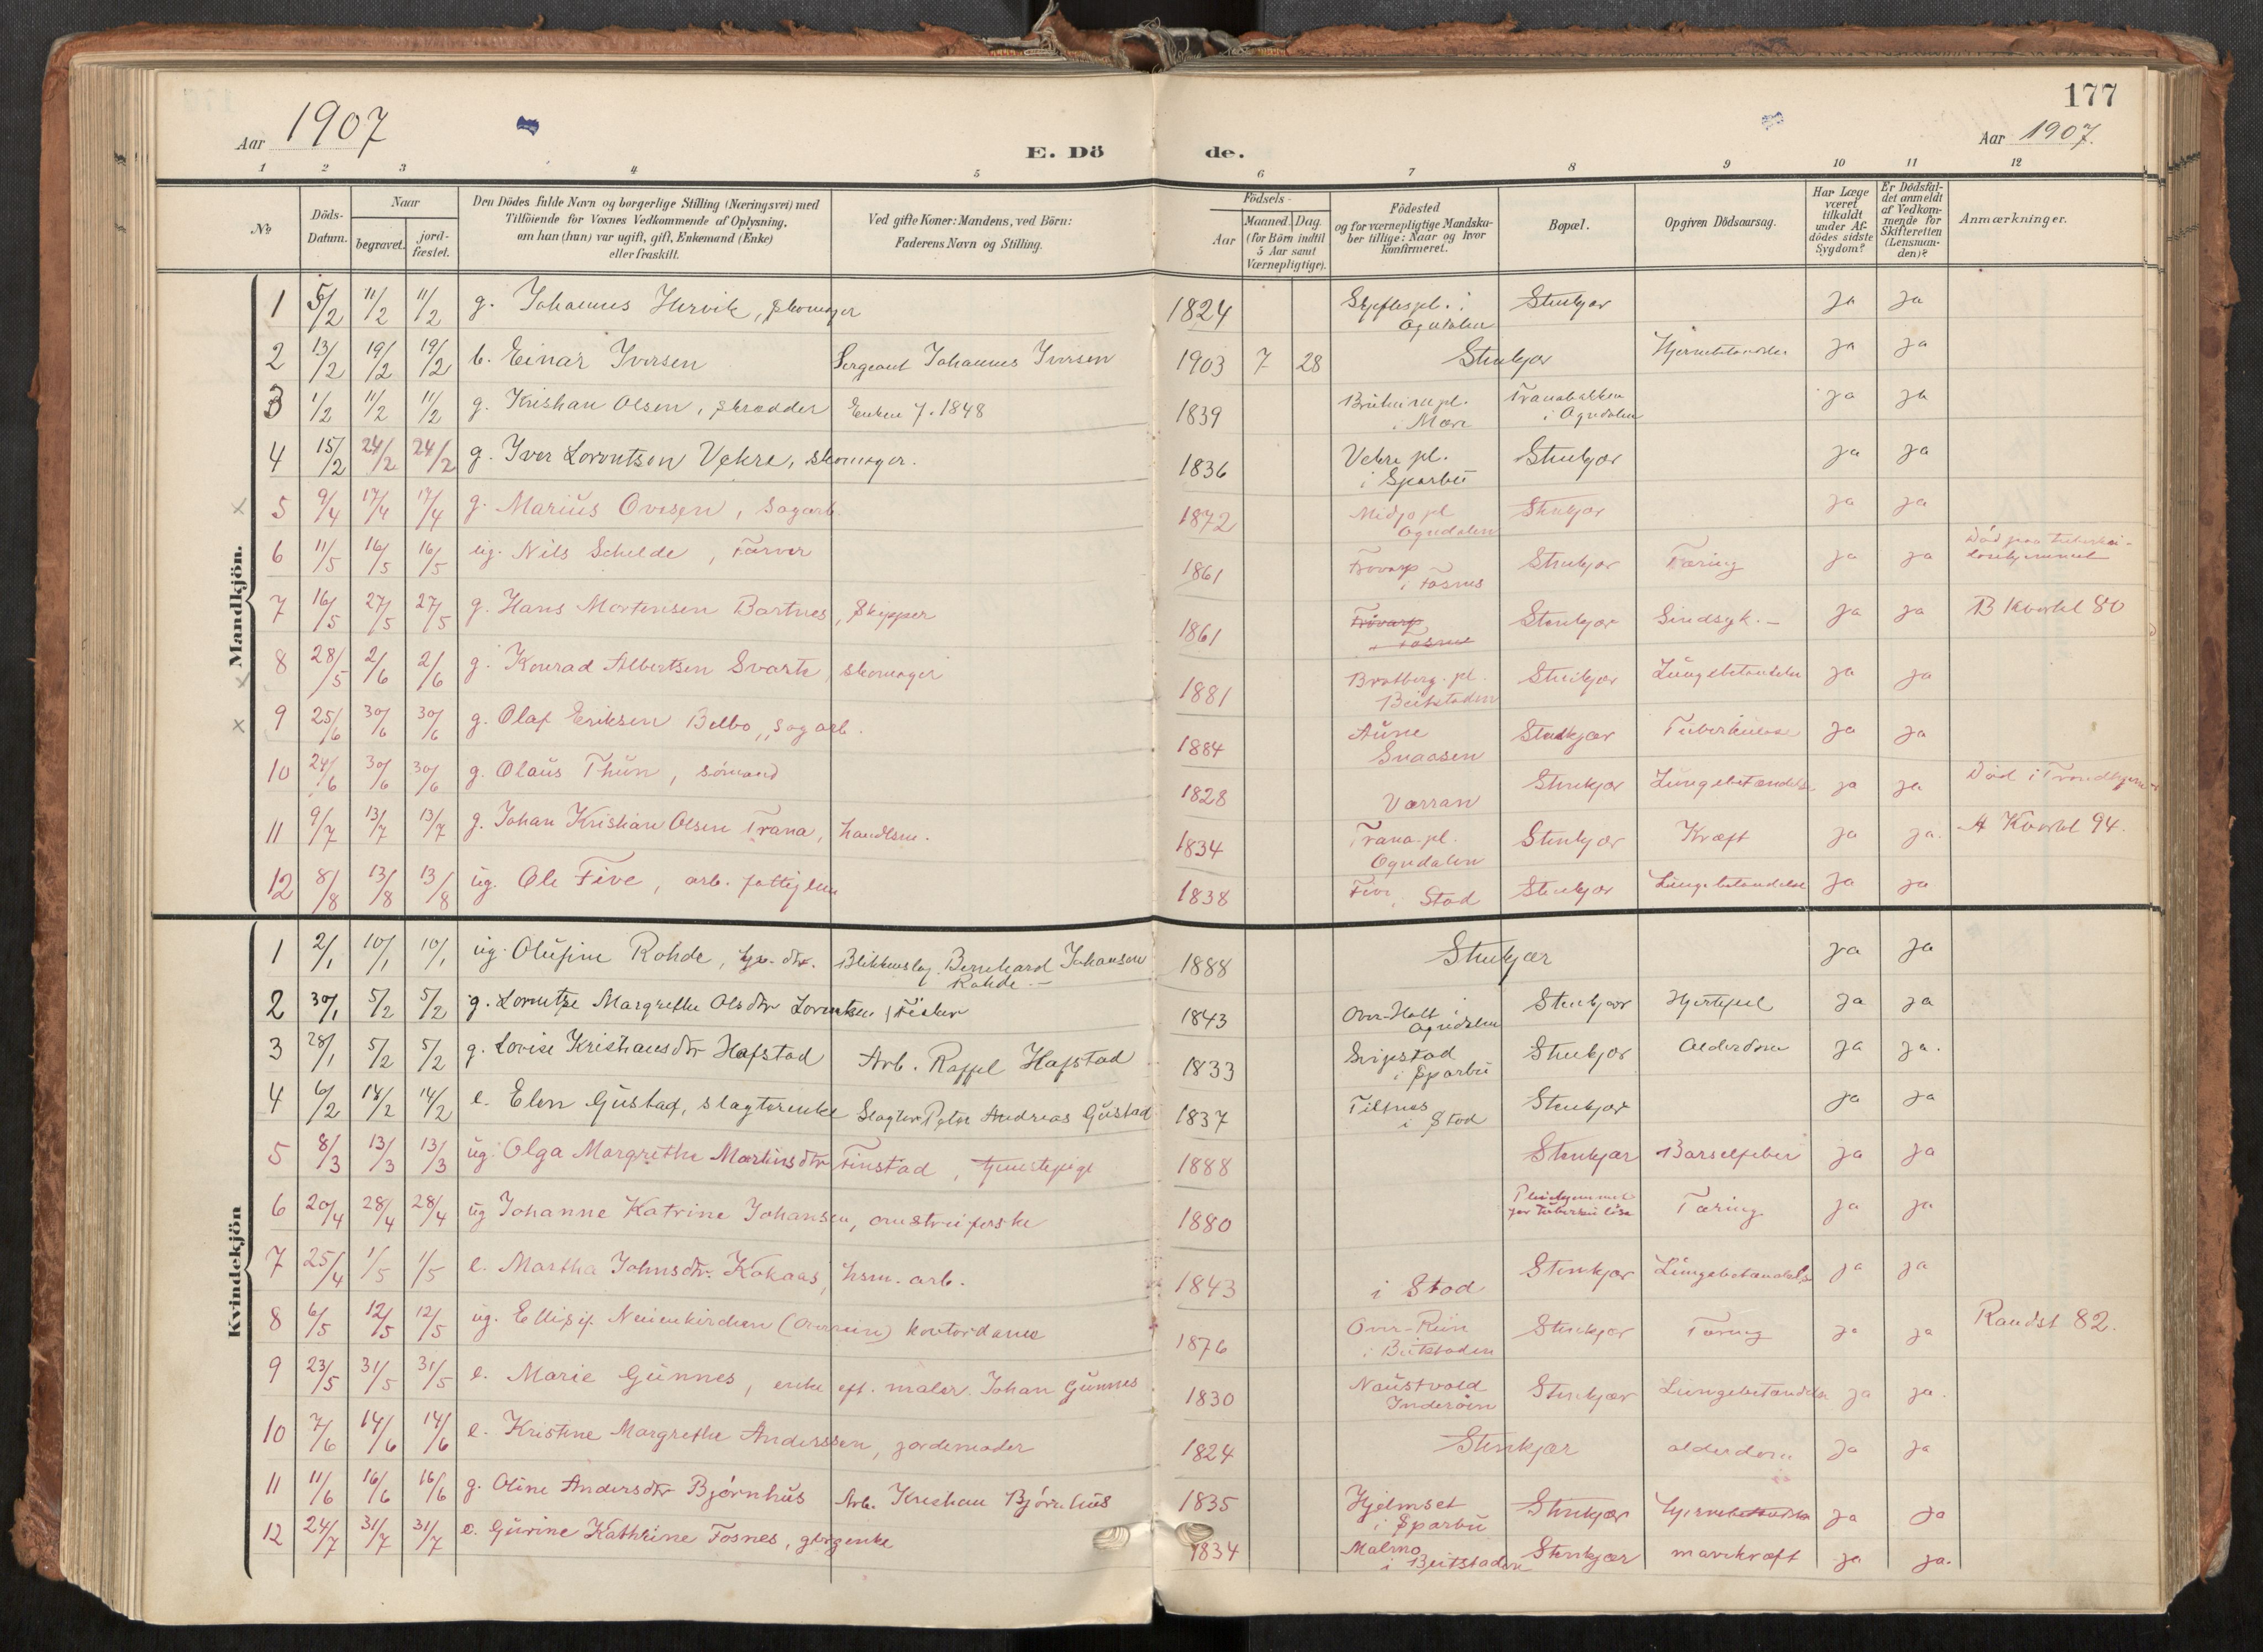 177
Aar 1907
E. Döde.
Aar 1907.
1 2 3 4 5 6 7 8 9 10 11 12
№
Döds-Datum.
Naar
begravet.
jord-fæstet.
Den Dödes fulde Navn og borgerlige Stilling (Næringsvei) med
Tilföiende for Voxnes Vedkommende af Oplysning,
om han (hun) var ugift, gift, Enkemand (Enke)
eller fraskilt.
Ved gifte Koner: Mandens, ved Börn:
Faderens Navn og Stilling.
Födsels-
Aar
Maaned. Dag.
(for Börn indtil
5 Aar samt
Værnepligtige).
Födested
og for værnepligtige Mandska-
ber tillige: Naar og hvor
konfirmeret.
Bopæl.
Opgiven Dödsaarsag.
Har Læge
været
tilkaldt
under Af-
dödes sidste
Sygdom?
Er Dödsfal-
det anmeldt
af Vedkom-
mende for
Skifteretten
(Lensman-
den)?
Anmærkninger.
Mandkjön.
1 5/2 11/2 11/2 g. Johannes , skomager 1824 i Ogndalen Stenkjær ja ja
2 13/2 19/2 19/2 b. Einar Iversen Sergeant Johannes Iversen 1903 7 28 Stenkjær Hjernebetændelse ja ja
3 1/2 11/2 11/2 g. Kristian Olsen, skrædder Enken f. 1848 1839 pl. i Mære Tranabakken i Ogndalen ja ja
4 15/2 24/2 24/2 g. Iver Lorentsen Vekre, skomager. 1836 Vekre pl. i Sparbu Stenkjær ja ja
5 9/4 17/4 17/4 g. Marius Ovesen, sagarb. 1872 Midjo pl Ogndalen Stenkjær ja ja
6 11/5 16/5 16/5 ug. Nils Schelde, Farver 1861 i Fosnes Stenkjær Tæring ja ja Död paa tuberku-losehjemmet
7 16/5 27/5 27/5 g. Hans Mortensen Bartnes, Skipper 1861 Fosnes Stenkjær Sindsyk. - ja ja B Kvartal 80
8 28/5 2/6 2/6 g. Konrad Albertsen Svarte, skomager 1881 Bratberg. pl. Beitstaden Stenkjær Lungebetændelse ja ja
9 25/6 30/6 30/6 g. Olaf Eriksen Belbo, sagarb. 1884 Aune Snaasen Stenkjær Tuberkulose ja ja
10 24/6 30/6 30/6 g. Olaus Thun, sömand 1828 Værran Stenkjær Lungebetændelse ja ja Död i Trondhjem
11 9/7 13/7 13/7 g. Johan Kristian Olsen Trana, handlsm. 1834 Trana. pl. Ogndalen Stenkjær Kræft ja ja. A Kvartal 94.
12 8/8 13/8 13/8 ug. Ole Five, arb. fattiglem 1838 Five i Stod Stenkjær Lungebetændelse ja ja
Kvindekjön
1 2/1 10/1 10/1 ug. Olufine Rohde, dtr. Blikkenslag. Bernhard Johansen Rohde. - 1888 Stenkjær ja ja
2 30/1 5/2 5/2 g. Lorentze Margrethe Olsdtr Lorentsen, Fisker 1843 Over-Holt i Ogndalen Stenkjær Hjertefeil ja ja
3 28/1 5/2 5/2 g. Lovise Kristiansdtr Hafstad Arb. Raffel Hafstad 1833 i Sparbu Stenkjær Alderdom ja ja.
4 6/2 14/2 14/2 e. Elen Gustad, slagterenke Slagter Peter Andreas Gustad 1837 Tiltnes i Stod Stenkjær ja ja
5 8/3 13/3 13/3 ug. Olga Margrethe Martinsdtr Finstad, tjenestepige 1888 Stenkjær Barselfeber ja ja
6 20/4 28/4 28/4 ug Johanne Katrine Johansen, omstreiferske 1880 Pleiehjemmet for tuberkulöse Tæring ja ja
7 25/4 1/5 1/5 e. Martha Johnsdtr. Kokaas, hsm. arb. 1843 i Stod Stenkjær Lungebetændelse ja ja
8 6/5 12/5 12/5 ug. Ellisif Neuenkirchen (Overrein) kontordame 1876 Over-Rein i Beitstaden Stenkjær Tæring ja ja Raudst 82.
9 23/5 31/5 31/5 e. Marie Gunnes, enke eft. maler Johan Gunnes 1830 Naustvold Inderöen Stenkjær Lungebetændelse ja ja.
10 7/6 14/6 14/6 e. Kristine Margrethe Anderssen, jordemoder 1824 Stenkjær alderdom ja ja
11 11/6 16/6 16/6 g. Oline Andersdtr Bjørnhus Arb. Kristian Bjørnhus 1835 Hjelmset i Sparbu Stenkjær Hjernebetændelse ja ja
12 24/7 31/7 31/7 e. Gurine Kathrine Fosnes, 1834 Malmo i Beitstaden Stenkjær mavekræft ja ja.